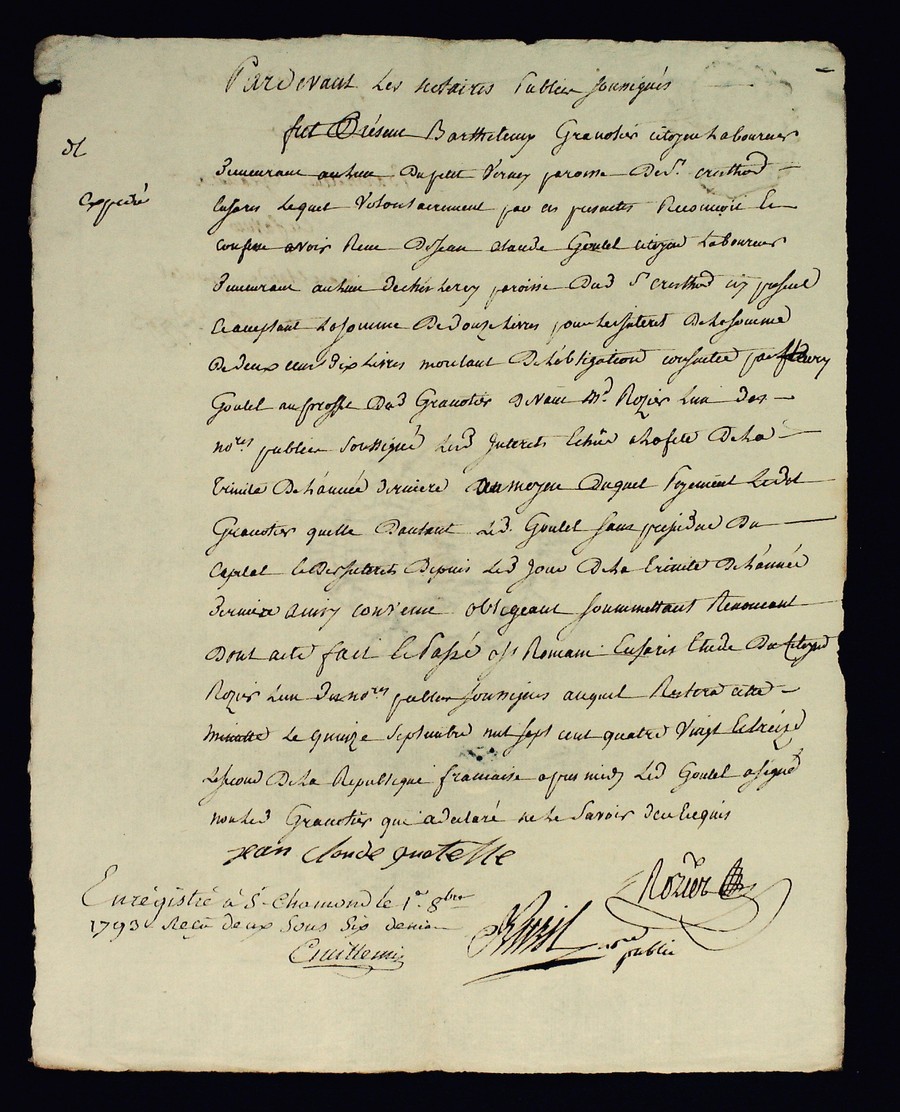 Pardevant Les notaires Publics soussignés
fut Présent Barthelemy Granotier citoyen Laboureur
d
demeurant au lieu Du petit Vernay paroisse De St. cristhod
expedié
Enjarés Lequel Volontairement par ces presentes Reconnoit Et
confesse avoir Reçu De Jean claude Goutel citoyen Laboureur
demeurant au lieu De paroisse Dud St cristhod icy present
Et acceptant La somme De Douze Livres pour Les Interet De La somme
De Deux cent dix Livres montant De L'obligation consentie par fleury
Goutel au proffit Dud Granotier devant Md Rozier L'un des
nores publics soussignés Lesd Interets Echüe a La fete De La
trinité De L'année derniere au moyen Duquel Payement Ledit
Granotier quitte D'autant Led. Goutel sans prejudice Du
Capital Et Des Interets Depuis Led Jour De La trinité De L'année
derniere ainsy convenu obligeant soummettant Renonceant
Dont acte fait Et Passé a St Romain Enjaris Etude Du Citoyen
Rozier L'un des nores publics soussignés auquel Restera cette
minutte Le quinze Septembre mil sept cent quatre Vingt Et treize
Lesecond De La Republique francaise apres midy Led Goutel a signé
non Led Granotier qui a declaré ne Le Savoir de ce Requis
jean claude gnotelle
Enregistré à St Chamond le 1er 8bre
Rozier
1793 Reçu deux Sous Six deniers
nore
public